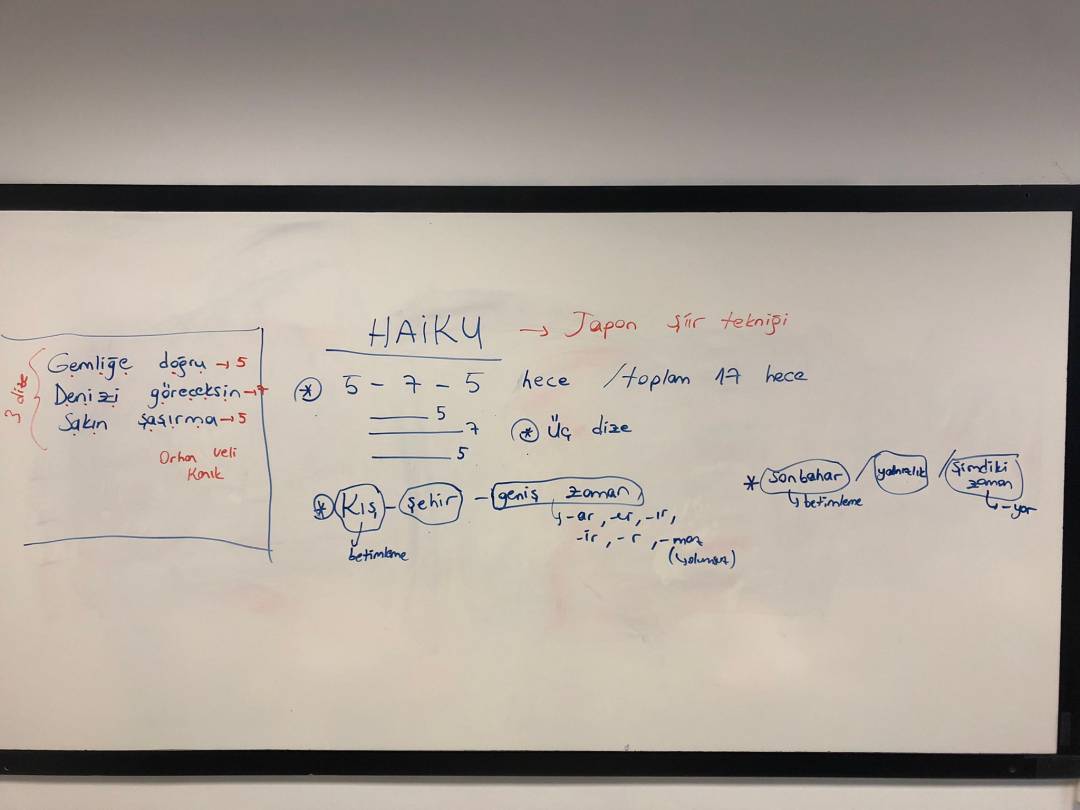 3 dize
Gemliğe doğru → 5
Denizi göreceksin → 7
Sakın şaşırma → 5
Orhan Veli
Kanık
HAİKU → Japon şiir tekniği
* 5 - 7 - 5 hece / toplam 17 hece
5
7
5
* Üç dize
* Kış - şehir - geniş zaman
betimleme
-ar, -er, -ır,
-ir, -r, -maz
(olumsuz)
* Sonbahar / yalnızlık / şimdiki zaman
betimleme
-yor